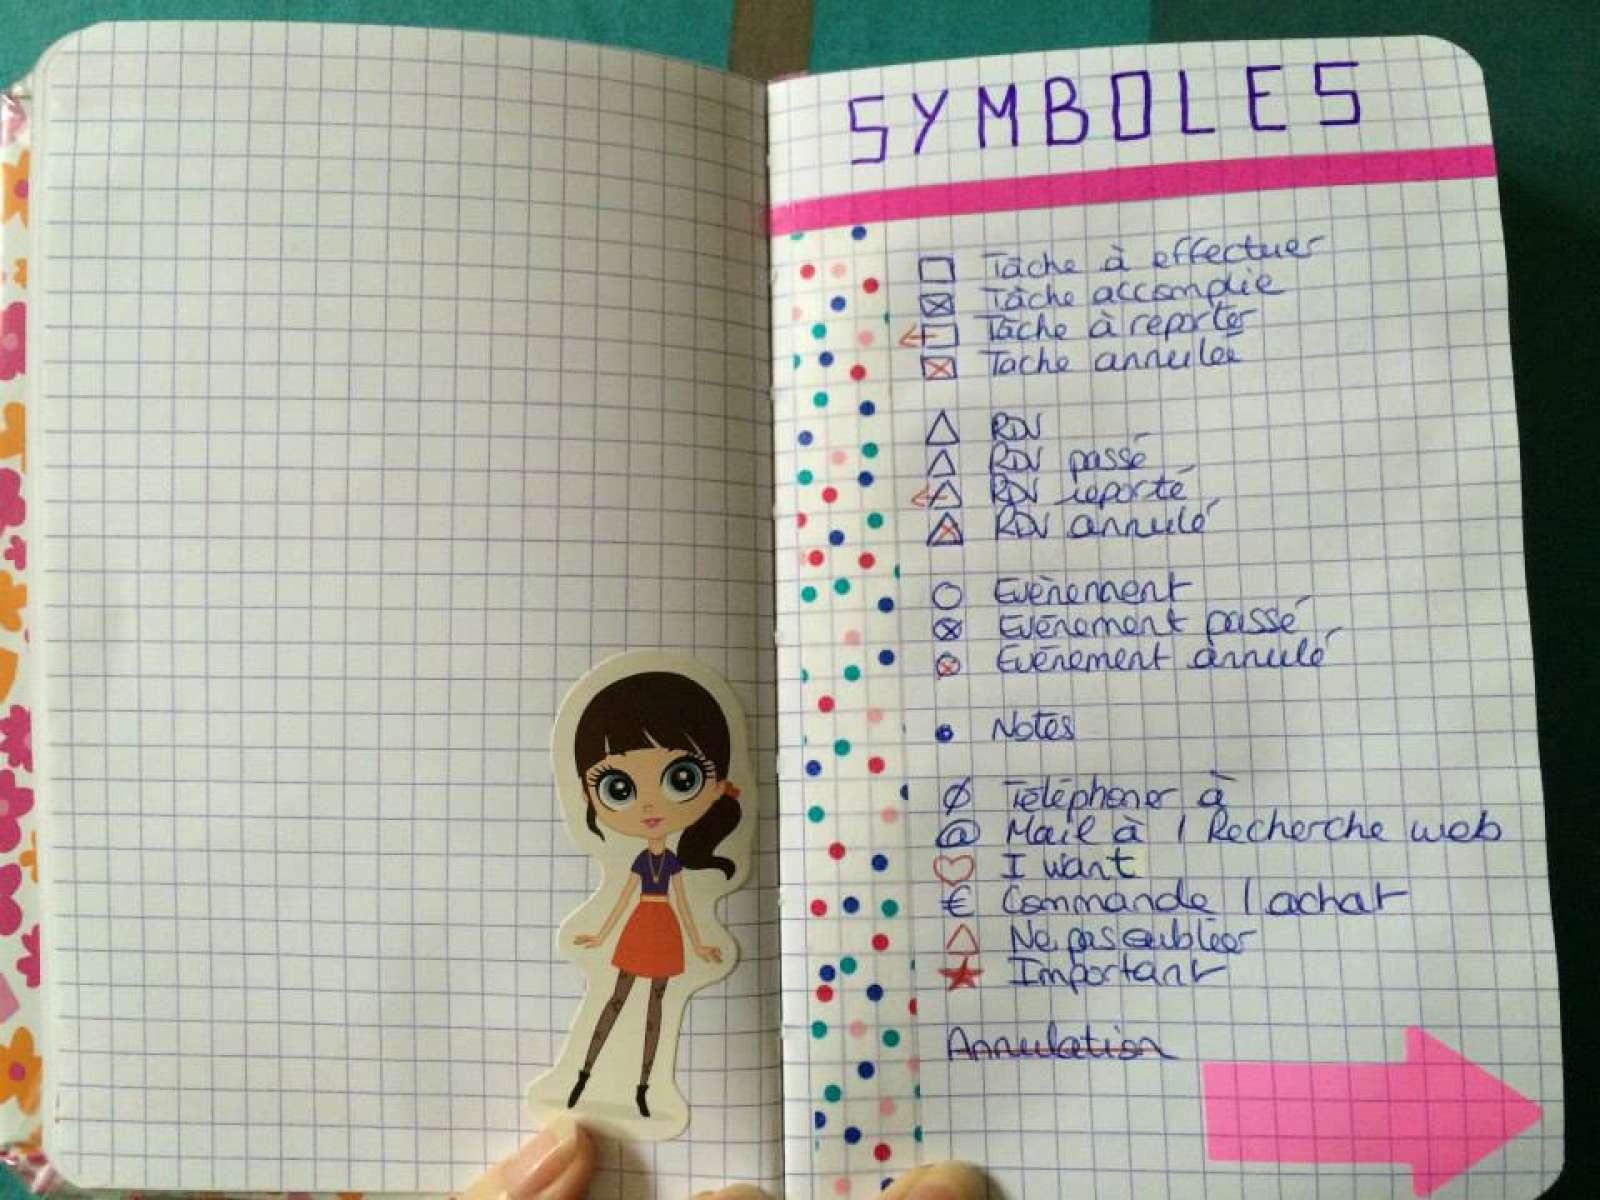 SYMBOLES
Tâche à effectuer
Tâche accomplie
Tâche à reporter
Tache annulée
RDV
RDV passé
RDV reporté
RDV annulé
Evènement
Evénement passé
Evénement annulé
Notes
Téléphoner à
@ Mail à / Recherche web
I want
€ Commande / achat
Ne pas oublier
Important
Annulation